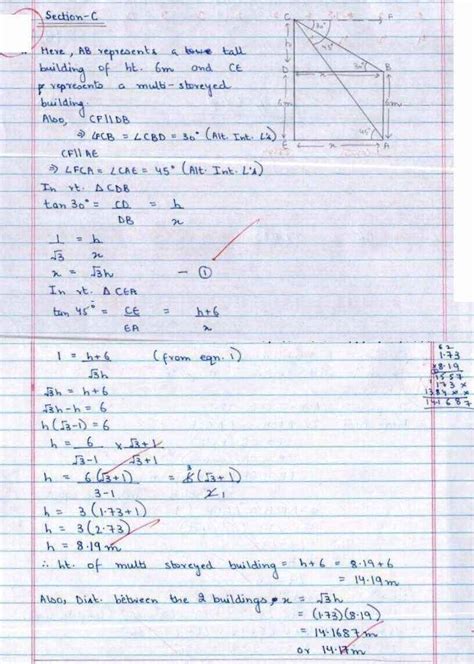 Section-C
Here, AB represents a tall
building of ht. 6m and CE
represents a multi-storeyed
building.
Also, CF||DB
⇒ ∠FCB = ∠CBD = 30° (Alt. Int. L's)
CF||AE
⇒ ∠FCA = ∠CAE = 45° (Alt. Int. L's)
In rt. △CDB
tan 30° = CD/DB = h/x
1/√3 = h/x
x = √3h — ①
In rt. △CEA
tan 45° = CE/EA = h+6/x
C F
30°
45°
h
D x 30° B
6m 6m
45°
E x A
1 = h+6/√3h (from eqn. 1)
√3h = h+6
√3h-h = 6
h(√3-1) = 6
h = 6/√3-1 × √3+1/√3+1
h = 6(√3+1)/3-1 = 6(√3+1)/2
3
1
h = 3(1.73+1)
h = 3(2.73)
h = 8.19m
∴ ht. of multi storeyed building = h+6 = 8.19+6
= 14.19m
Also, Dist. between the 2 buildings, x = √3h
= (1.73)(8.19)
= 14.1687m
or 14.17m
6 2
1.73
×8.19
1557
173×
1384××
14.1687